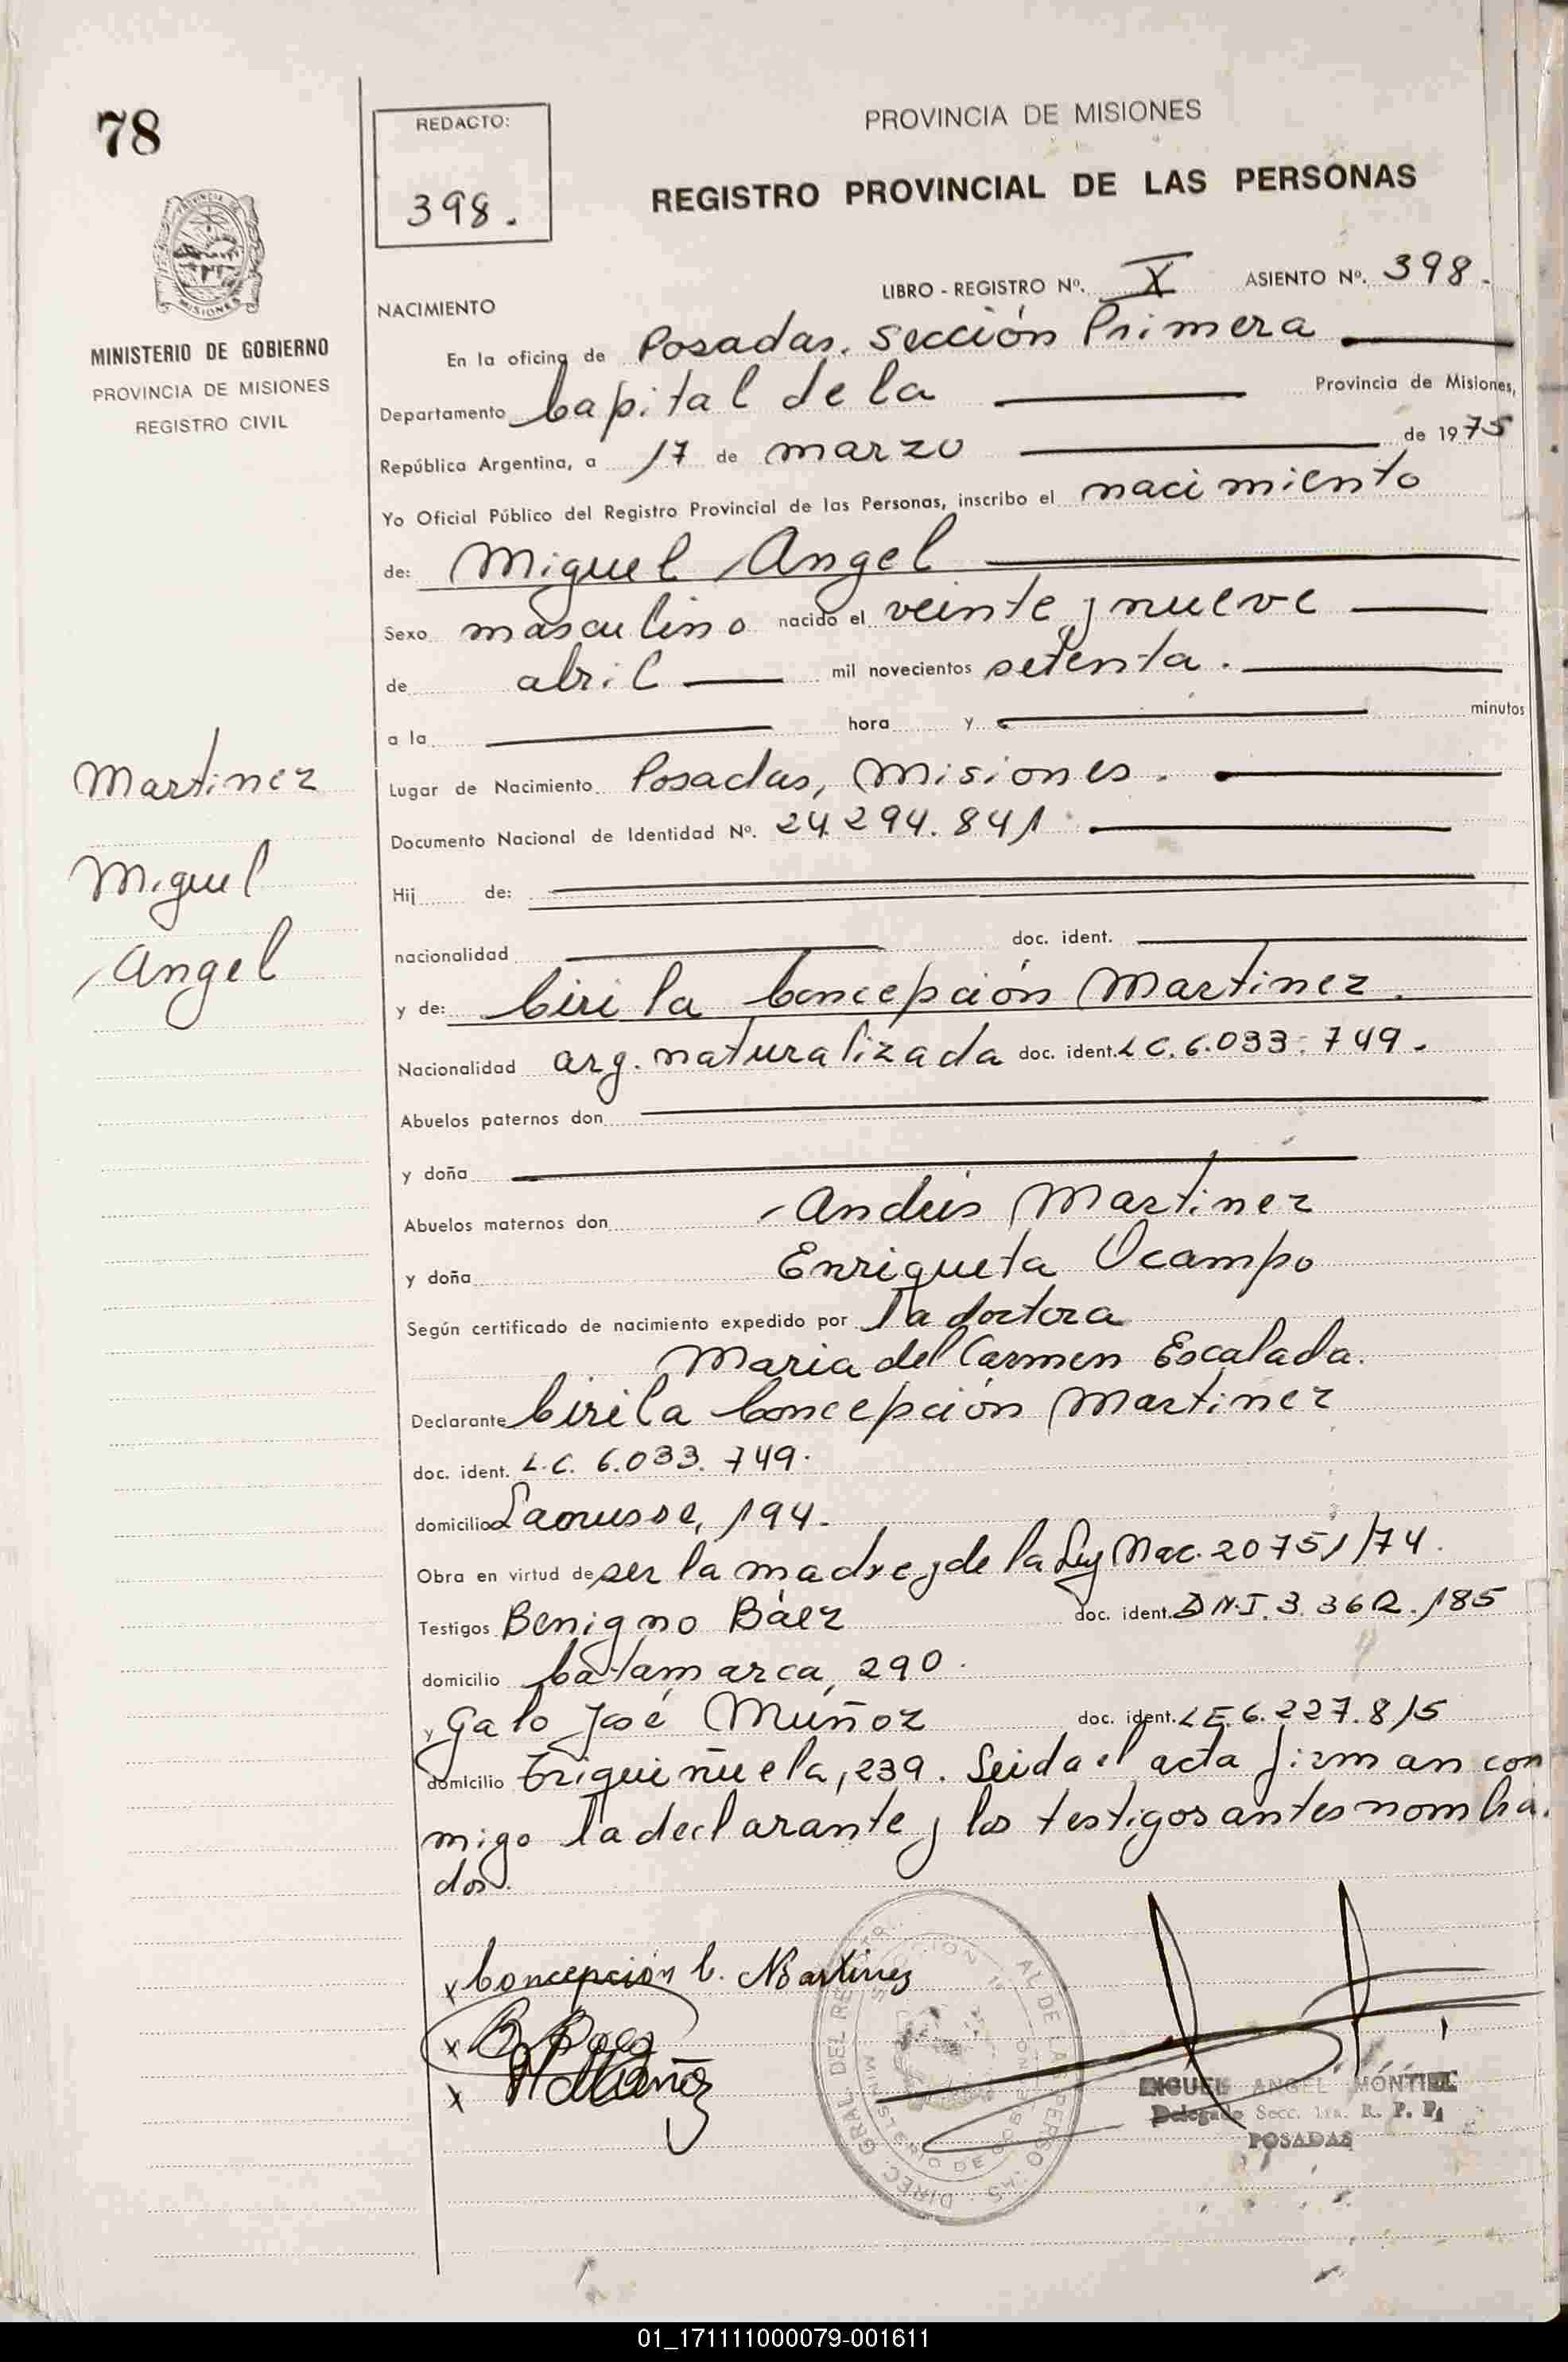 78
REDACTO:
398.
PROVINCIA DE MISIONES
REGISTRO PROVINCIAL DE LAS PERSONAS
PROVINCIA DE
MISIONES
MINISTERIO DE GOBIERNO
PROVINCIA DE MISIONES
REGISTRO CIVIL
LIBRO - REGISTRO Nº. X ASIENTO Nº. 398.
NACIMIENTO
En la oficina de Posadas. Sección Primera
Departamento Capital de la Provincia de Misiones,
República Argentina, a 17 de marzo de 1975
Yo Oficial Público del Registro Provincial de las Personas, inscribo el nacimiento
de: Miguel Angel
Sexo masculino nacido el veinte y nueve
de abril mil novecientos setenta.
a la hora y minutos
Martinez
Miguel
Angel
Lugar de Nacimiento Posadas, Misiones.
Documento Nacional de Identidad Nº. 24.294.841
Hij de:
nacionalidad doc. ident.
y de: Cirila Concepción Martinez.
Nacionalidad arg. naturalizada doc. ident. L C. 6.033.749.
Abuelos paternos don
y doña
Abuelos maternos don Andrés Martinez
y doña Enriqueta Ocampo
Según certificado de nacimiento expedido por la doctora
Maria del Carmen Escalada.
Declarante Cirila Concepción Martinez
doc. ident. L.C. 6.033.749.
domicilio Lanusse, 194.
Obra en virtud de ser la madre y de la Ley Nac. 20751/74.
Testigos Benigno Báez doc. ident. D N.I. 3.362.185
4
domicilio Catamarca, 290.
y Galo José Múñoz doc. ident. L E. 6.227.815
domicilio Trigueñuela, 239. Leida el acta firman con
migo la declarante y los testigos antes nombra.
dos.
x Concepción C. Martinez
x B. Baez
x Muñoz
DIREC. GRAL. DEL REGISTR AL DE LAS PERSO AS
SECCION 1ª
MINISTERIO DE GOBIERNO
MIGUEL ANGEL MONTIEL
Delegado Secc. 1ra. R. P. P.
POSADAS
01_171111000079-001611